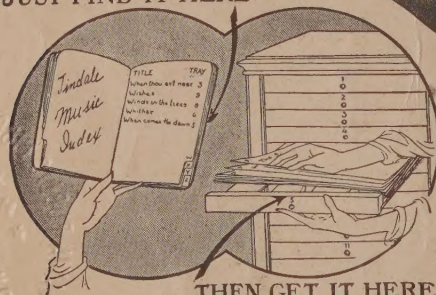 JUST FIND IT HERE
Tindale
Music
Index
TITLE TRAY
When thou art near 3
Wishes 9
Winds in the trees 8
Whither 6
When comes the dawn 5
1
2
3
4
11
THEN GET IT HERE